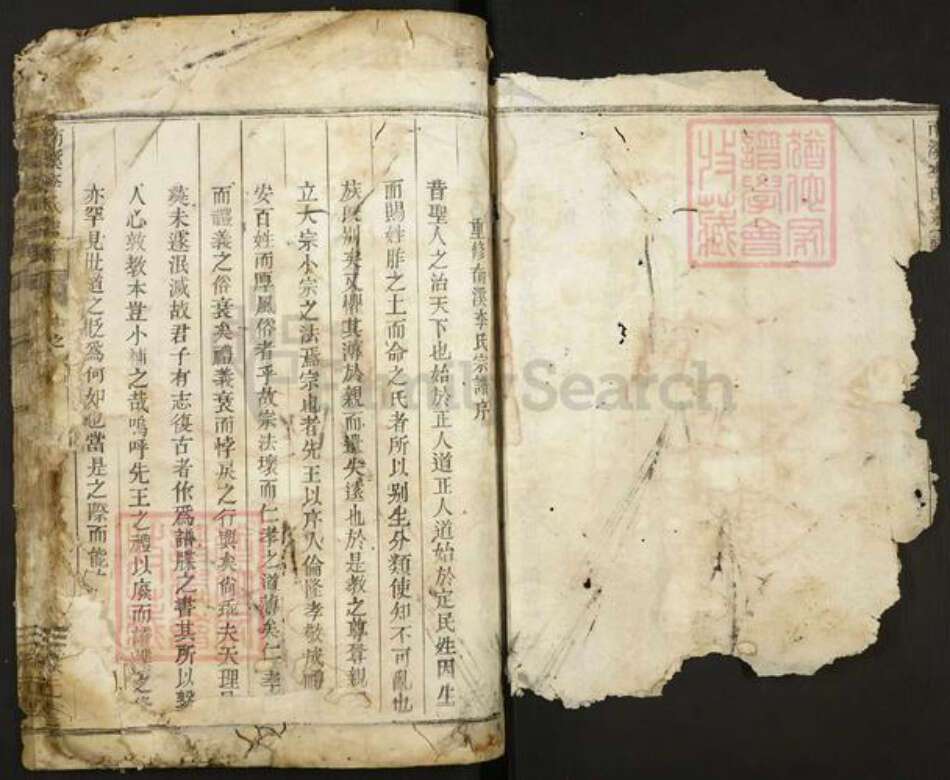 重修南溪李氏宗譜序
昔聖人之治天下也始於正人道正人道始於定民姓因生
而賜姓胙之土而命之氏者所以别生分類使知不可亂也
族民别矣又懼其薄於親而遺失遠也於是教之尊尊親
立大宗小宗之法焉宗也者先王以序人倫隆孝敬成而
安百姓而厚風俗者乎故宗法壞而仁孝之道薄矣仁孝
而禮義之俗衰矣禮義衰而悖戾之行興矣尚頼夫天理
彛未遂泯滅故君子有志復古者作為譜牒之書其所以繫
人心敦教本豈小補之哉嗚呼先王之禮以廢而譜牒之修
亦罕見世道之貶為何如也當是之際而能
南溪李氏
譜學會
收藏
FamilySearch